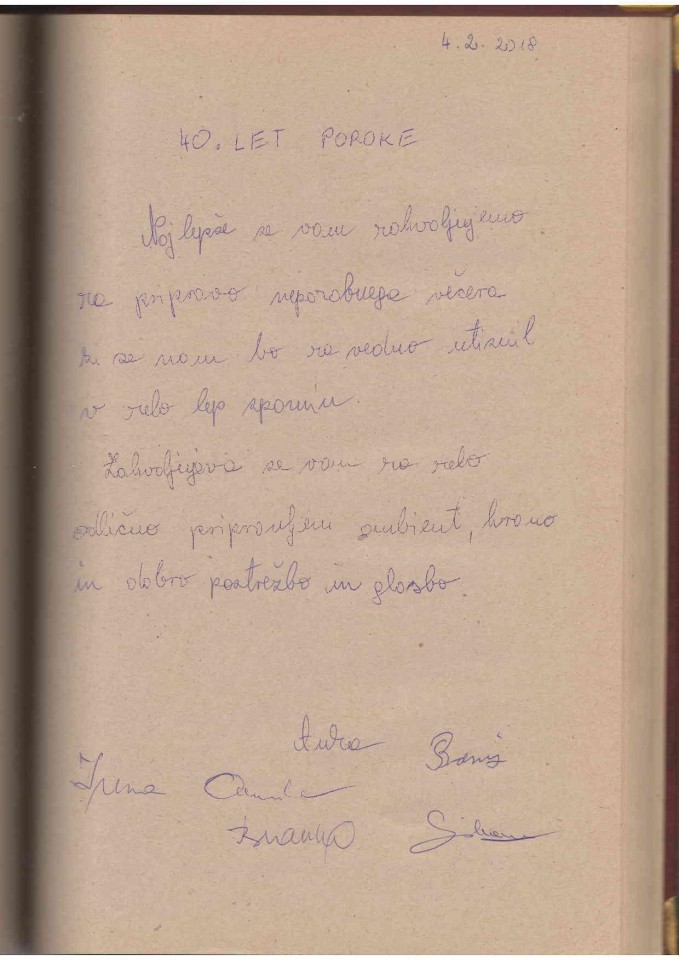 4.2.2018
40. LET POROKE
Najlepše se vam zahvaljujemo
za pripravo nepozabnega večera
ki se nam bo za vedno utisnil
v zelo lep spomin.
Zahvaljujeva se vam za zelo
odlično pripravljeni ambient, hrano
in dobro postrežbo in glasbo
Irena
Branko